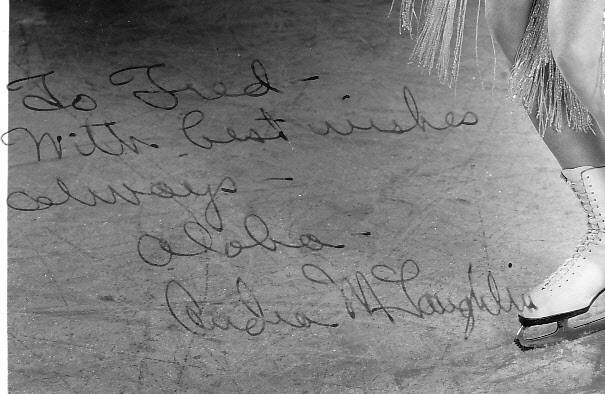 To Fred -
With best wishes
always -
aloha -
Andra McLaughlin